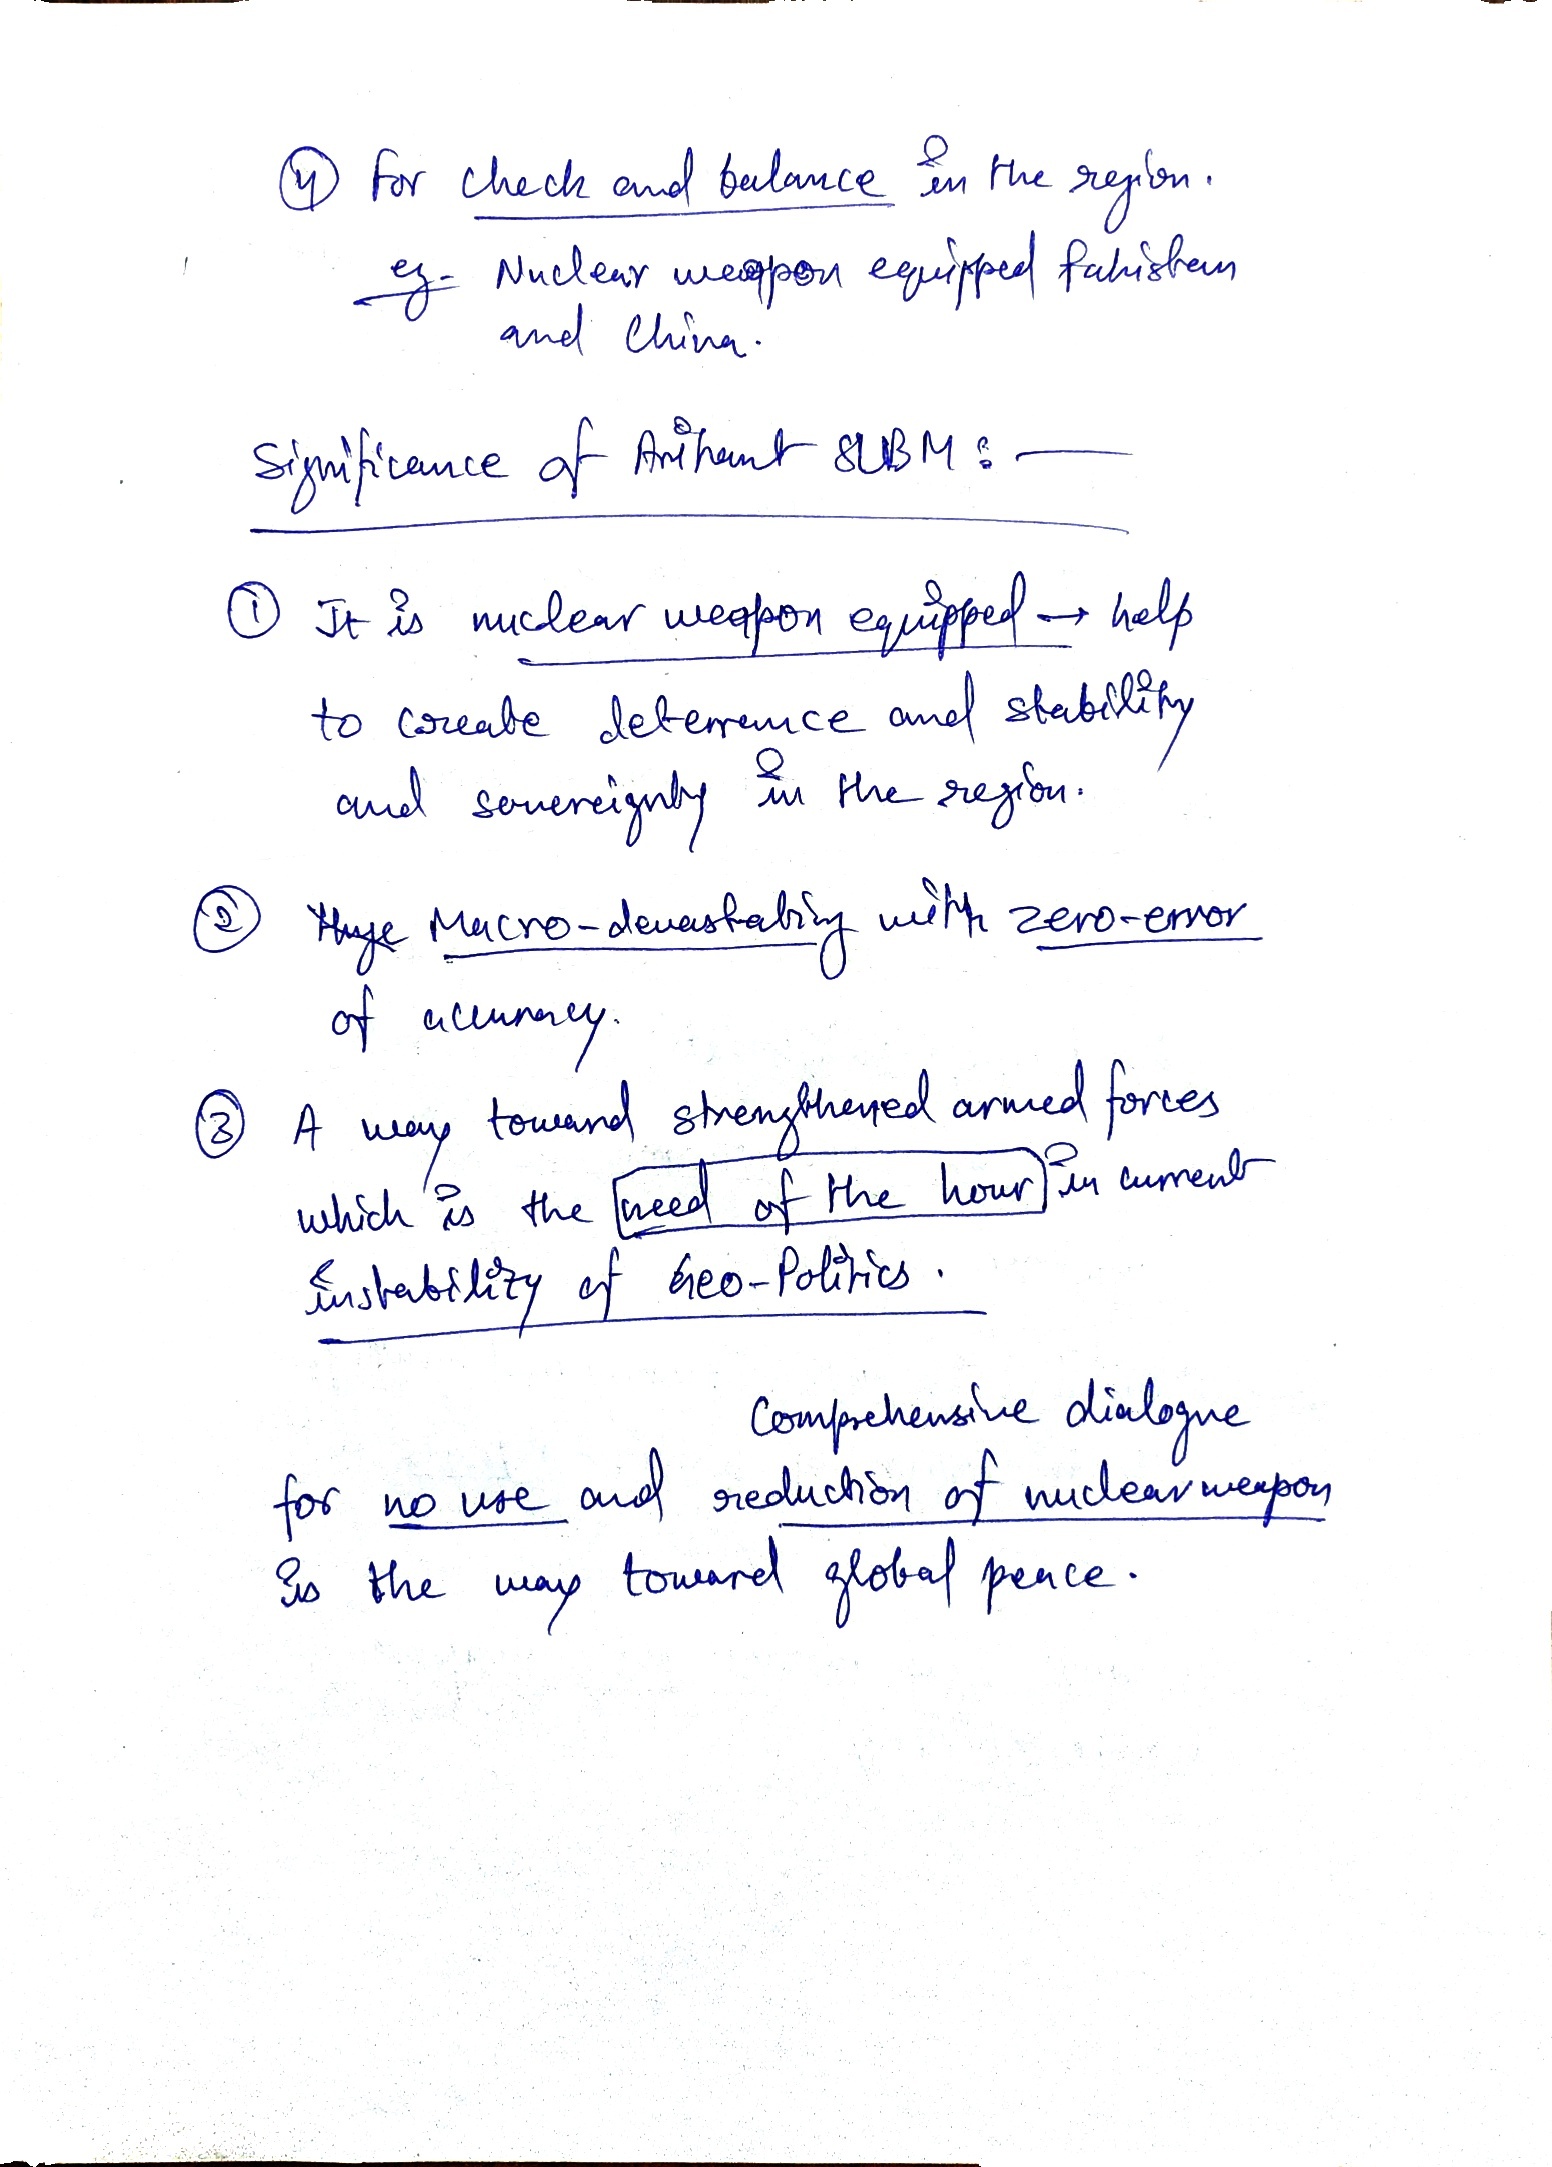 ④ For check and balance in the region.
eg- Nuclear weapon equipped Pakistan
and China.
Significance of Arihant SLBM : —
① It is nuclear weapon equipped → help
to create deterrence and stability
and sovereignty in the region.
② Huge Macro-devastating with zero-error
of accuracy.
③ A way toward strengthened armed forces
which is the need of the hour in current
instability of Geo-Politics.
Comprehensive dialogue
for no use and reduction of nuclear weapon
is the way toward global peace.